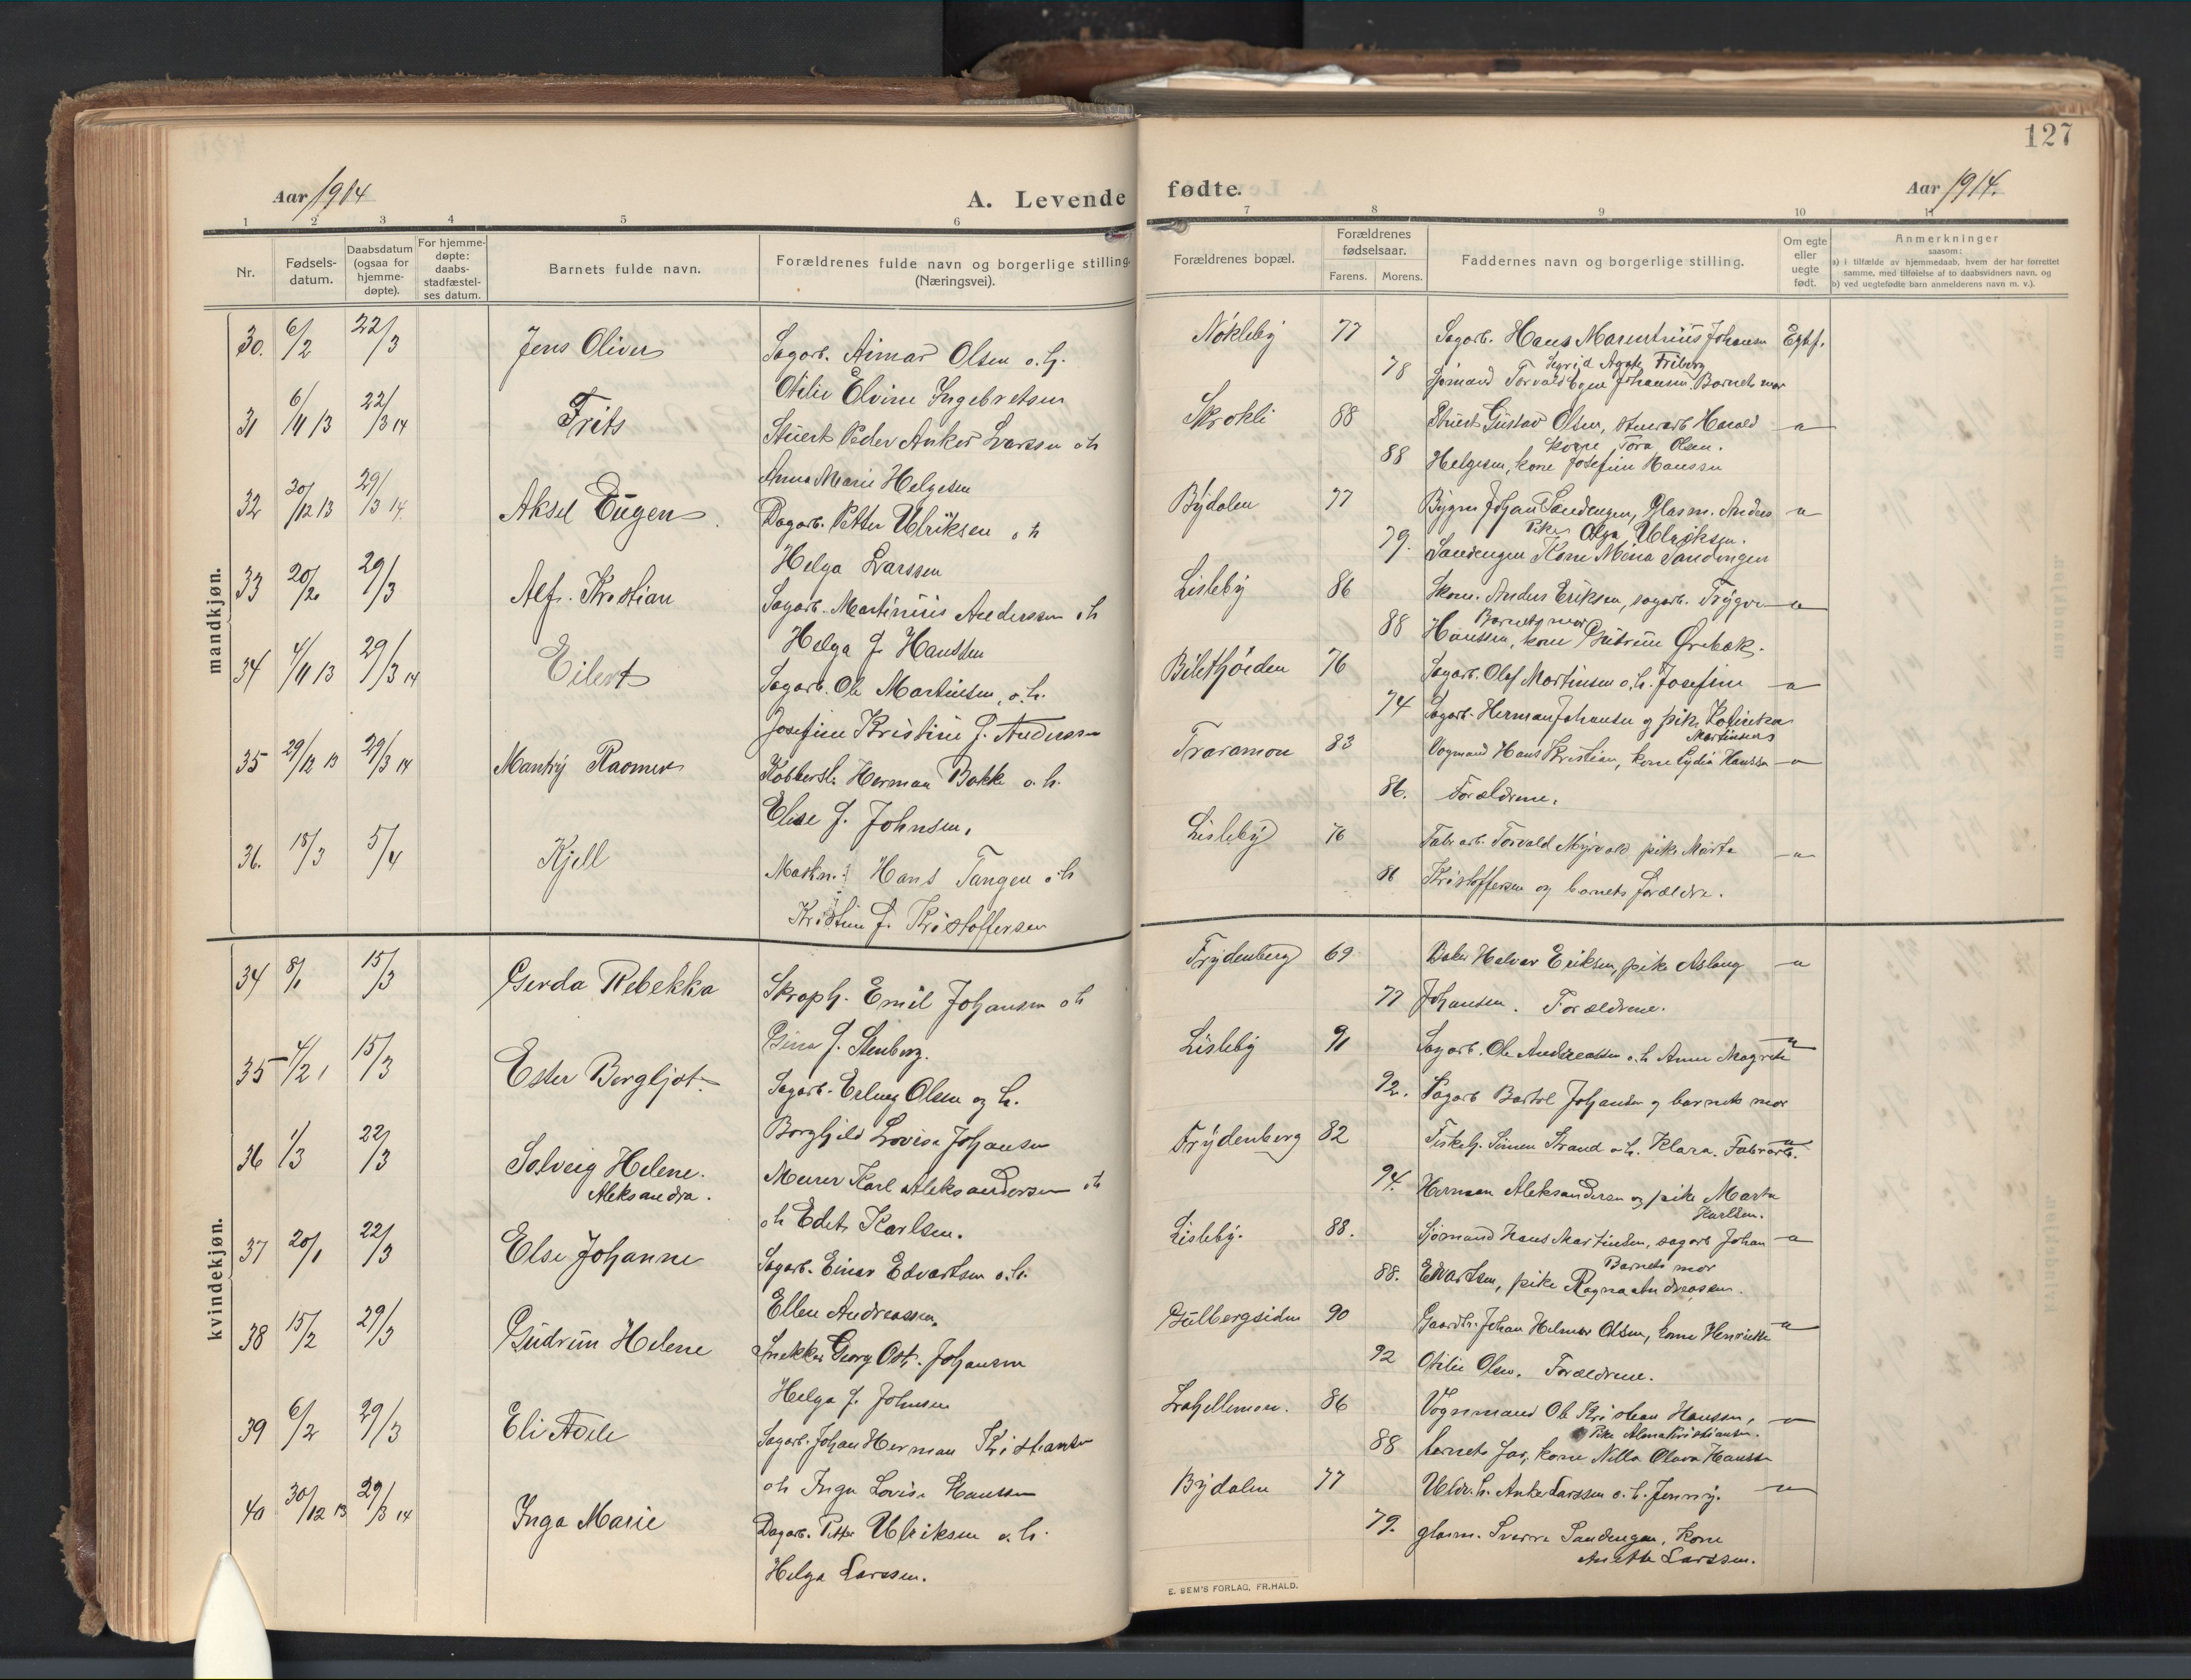 127
Aar 1914
A. Levende fødte.
Aar 1914.
1 2 3 4 5 6 7 8 9 10 11
Nr.
Fødsels-
datum.
Daabsdatum
(ogsaa for
hjemme-
døpte).
For hjemme-
døpte:
daabs-
stadfæstel-
ses datum.
Barnets fulde navn.
Forældrenes fulde navn og borgerlige stilling.
(Næringsvei).
Forældrenes bopæl.
Forældrenes
fødselsaar.
Farens. Morens.
Faddernes navn og borgerlige stilling.
Om egte
eller
uegte
født.
Anmerkninger
saasom:
a) i tilfælde av hjemmedaab, hvem der har forrettet
samme, med tilføielse af to daabsvidners navn, og
b) ved uegtefødte barn anmelderens navn m. v.).
mandkjøn.
30. 6/2 22/3 Jens Oliver
Sagarb. Aimar Olsen o.h.
Otilie Elvine Ingebretsen
Nøkleby 77 78
Sagarb. Hans Johansen Egtf.
Sigrid Agate Friberg
Sjømand Torvald Johansen. Barnets mor
31 6/11 13 22/3 14 Frits
Stuert Peder Anker Larssen o h
Anna Marie Helgesen
Skrokli 88 88
Stuert Gustav Olsen, Harald
kone Tora Olsen.
Helgesen, kone Josefine Hanssen
32 20/12 13 29/3 14. Aksel Eugen.
Dagarb. Petter Ulriksen o h
Helga Larssen
Bydalen 77 79.
Bygm Johan Sandengen, Glasm. Anders
Pike Olga Ulriksen.
Sandengen Kone Mina Sandengen
33 20/2 29/3 Alf. Kristian
Sagarb. Martinius Anderssen o h
Helga f. Hanssen
Lisleby 86 88
Skom. Anders Eriksen, sagarb. Trygve
Barnets mor
Hanssen, kone Gudrun Ørebæk.
34 4/11 13 29/3 14 Eilert
Sagarb. Ole Martinsen, o.h.
Josefine Kristine f. Andersen
76 74
Sagarb. Olaf Martinsen o.h. Josefine
Sagarb. Herman Johansen og pike
Martinsens
35 29/12 13 29/3 14 Ragner
Herman Bakke o.h.
Elise f. Johnsen.
Traramon 83 86.
Vogmand Hans Kristian, kone Lydia Hanssen
Forældrene.
36. 18/3 5/4 Kjell
Maskn. Hans Tangen o h
Kristine f. Kristoffersen
Lisleby 76 86
Fabr arb. Torvald Myrvold pike Marta
Kristoffersen og barnets forældre.
kvindekjøn.
34 8/1 15/3 Gerda Rebekka
Skraph. Emil Johansen o h
Gina f. Stenberg.
Frydenberg 69 77
Baker Halvor Eriksen, pike Aslaug
Johansen. Forældrene.
35 15/3 Ester Bergljot.
Sagarb. Erling Olsen og h.
Borghild Lovise Johansen
Lisleby 91 92.
Sagarb. Ole Andreassen o.h Anne Magrete
Sagarb Bartol Johansen og barnets mor
36 1/3 22/3 Solveig Helene.
Aleksandra.
Murer Karl Aleksandersen o h
o h Edit Karlsen.
Frydenberg 82 94.
Fiskeh. Simen Strand o.h. Klara. Fabrarb.
Herman Aleksandersen og pike Marta
Karlsen.
37 20/1 22/3 Else Johanne
Sagarb. Einar Edvartsen o.h.
Ellen Andreassen.
Lisleby. 88. 88.
Sjømand Hans Martinsen, sagarb Johan
Barnets mor
Edvartsen, pike Ragna Andreassen.
38 15/2 29/3 Gudrun Helene
Snekker Georg Osk. Johansen
Helga f. Johnsen
Gulbergsiden 90 92
Gaardbr. Johan Helmer Olsen, kone Henriette
Otilie Olsen. Forældrene.
39 6/2 29/3 Eli Adele
Sagarb. Johan Herman Kristiansen
o h Inga Lovise Hanssen
Lahellemoen. 86 88
Vognmand Ole Kristian Hanssen,
Pike Alma Kristiansen.
barnets far, kone Nilla Olava Hanssen
40 30/12 13 29/3 14 Inga Marie
Dagarb. Petter Ulriksen o.h.
Helga Larssen.
Bydalen 77 79.
Anker Larssen o.h. Jenny.
glasm. Sverre Sandengen, Kone
Anette Larssen.
E. SEM'S FORLAG, FR.HALD.